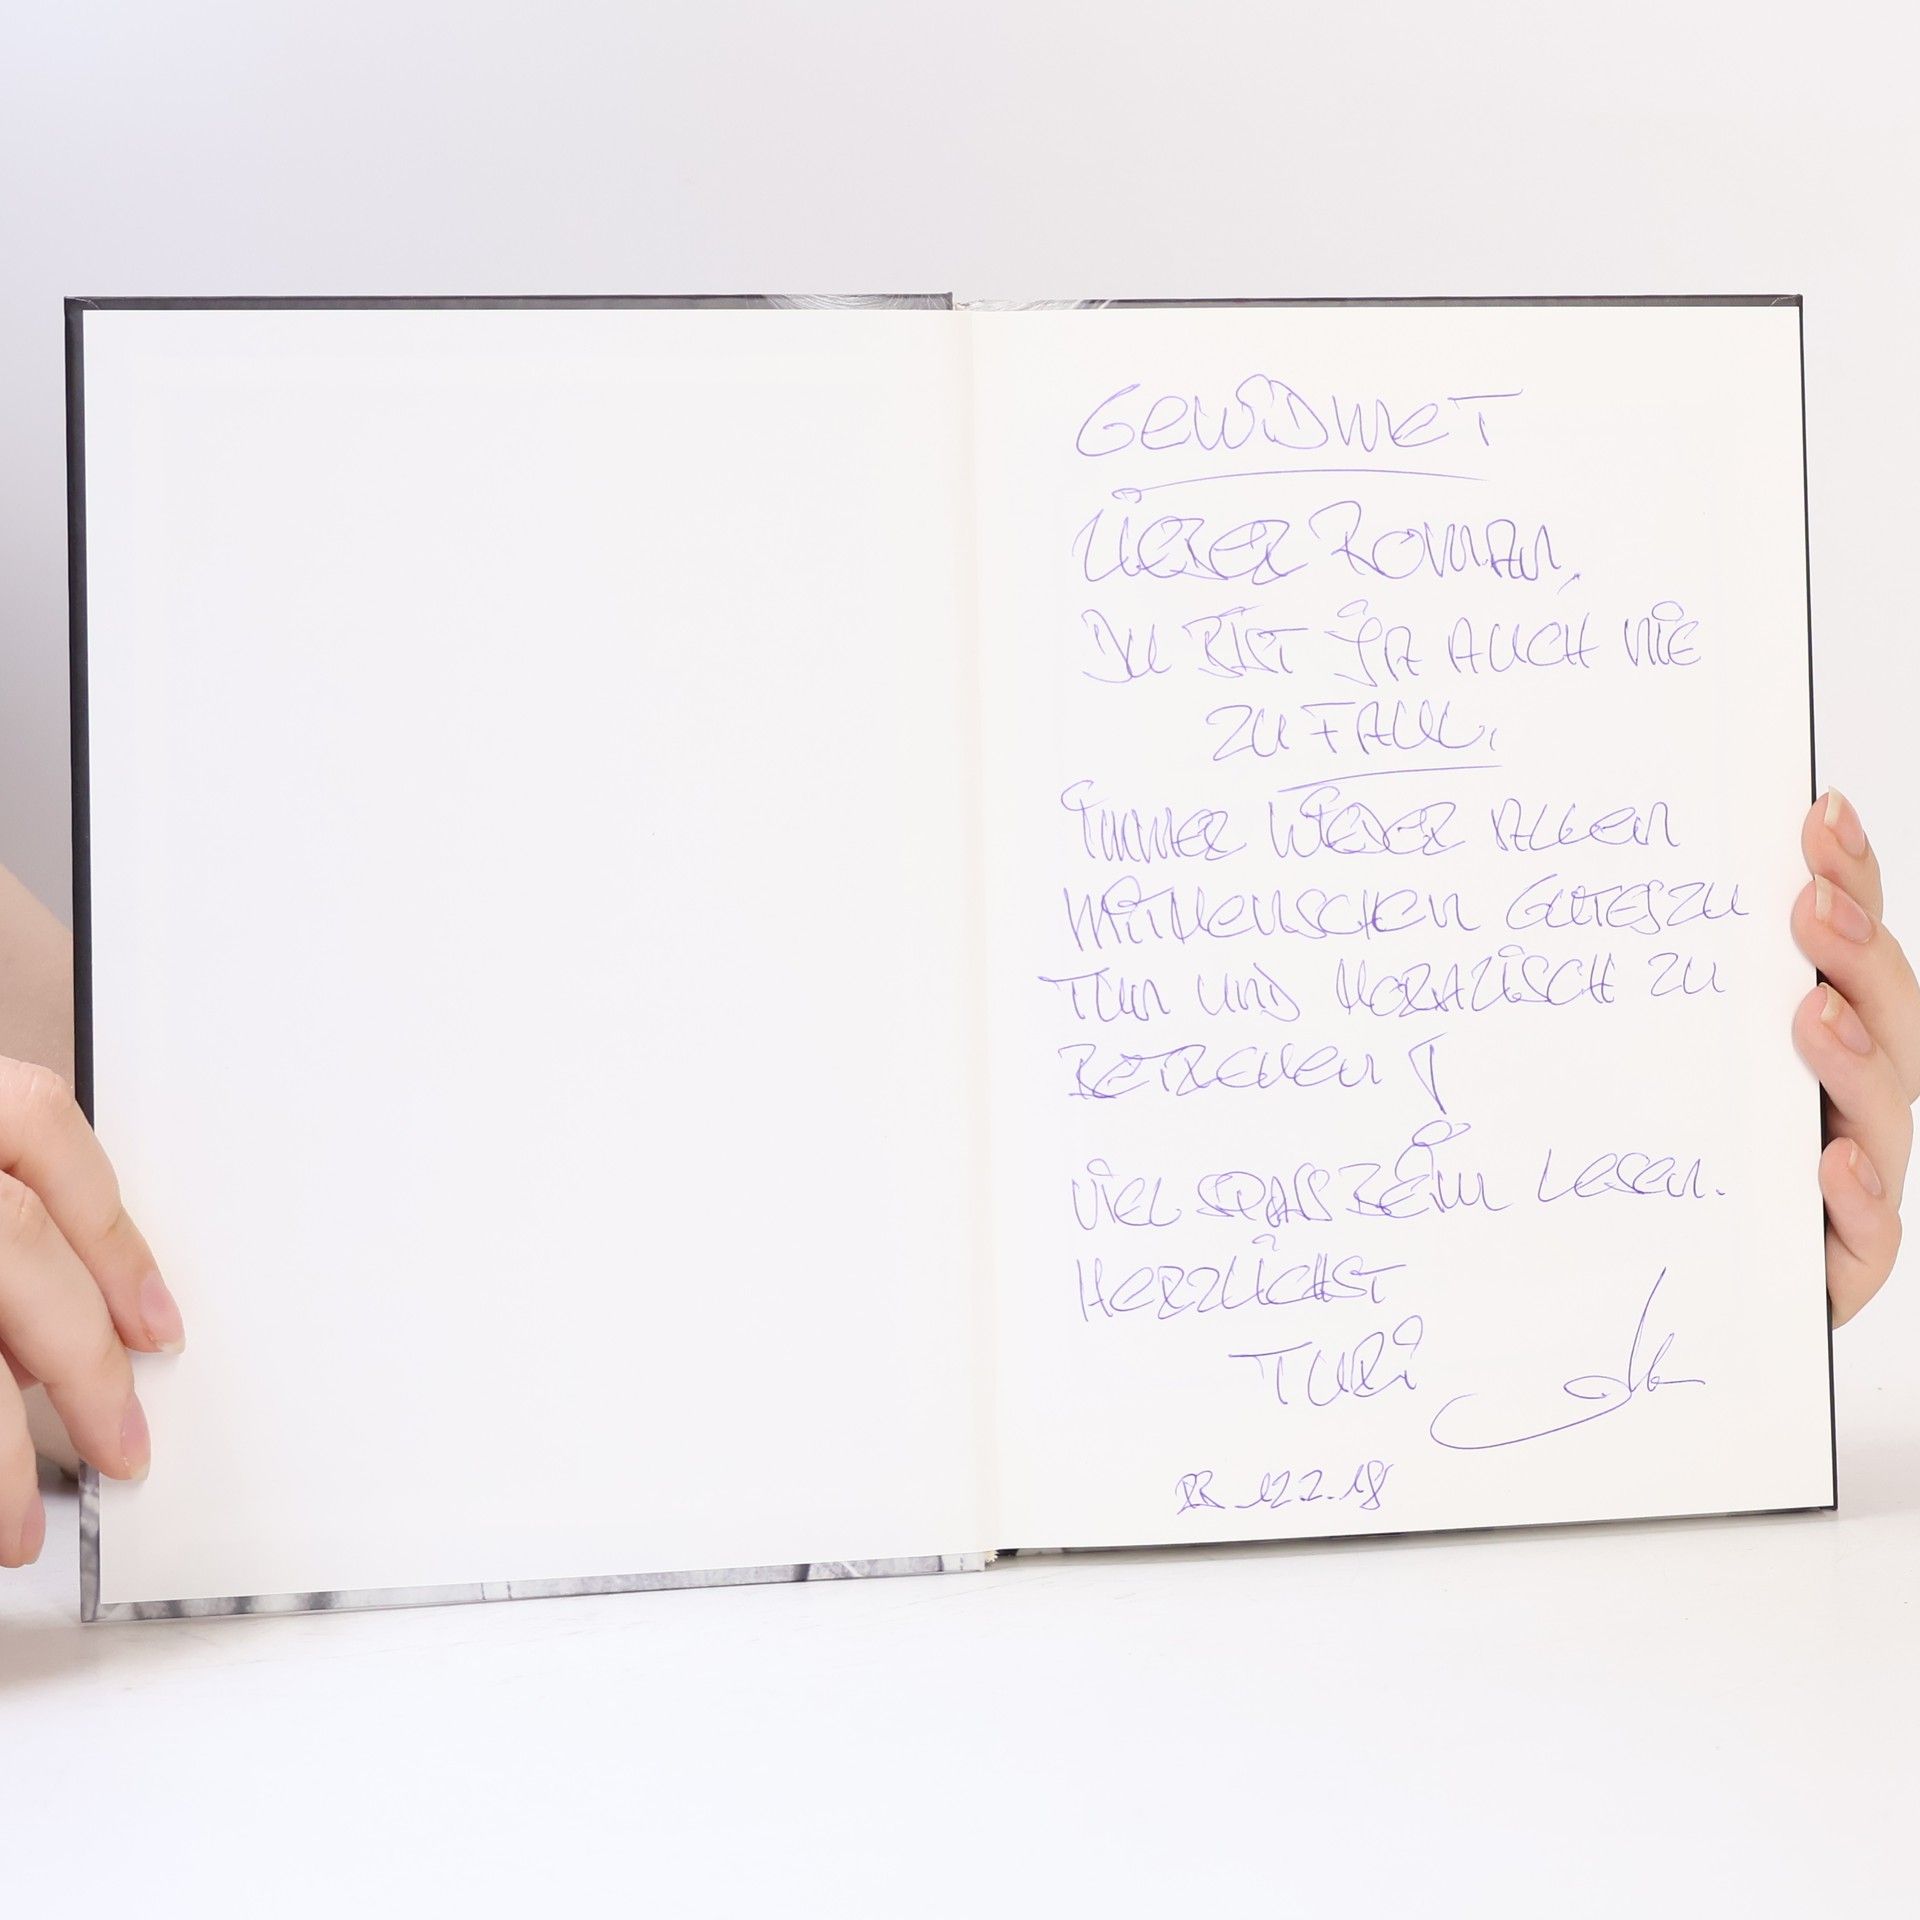 GEWIDMET
LIEBER ROMAN,
DU BIST JA AUCH NIE
ZU FAUL,
IMMER WIEDER ALLEN
MITMENSCHEN GUTES ZU
TUN UND MORALISCH ZU
BETREUEN!
VIEL SPASS BEIM LESEN.
HERZLICHST
TURI
12.2.18